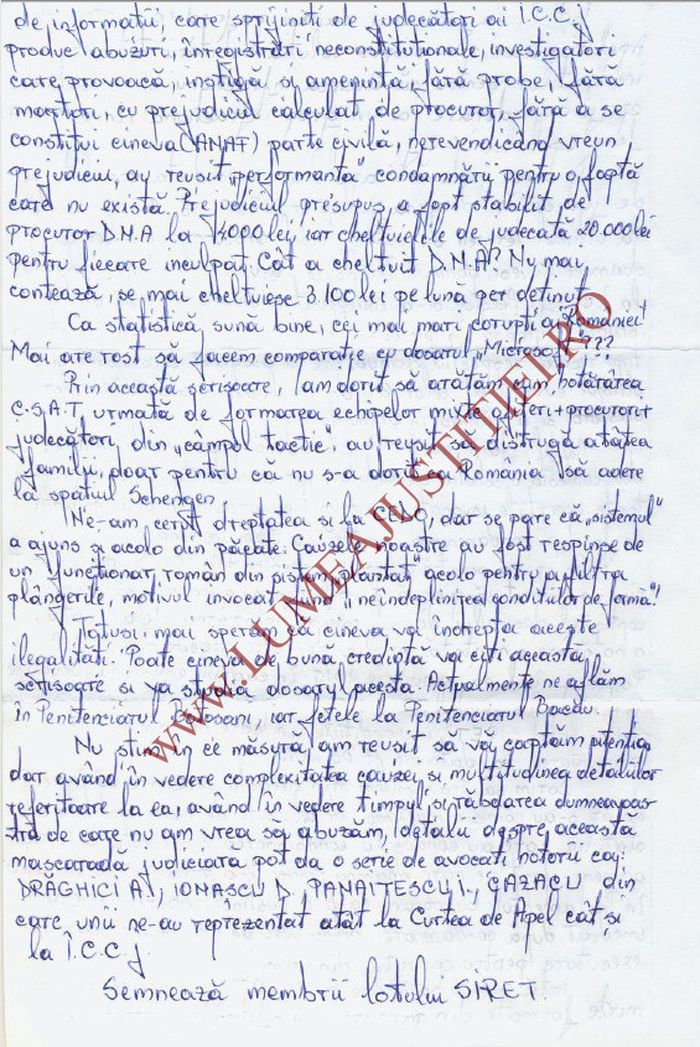 de informatii, care sprijiniti de judecători ai I.C.C.j
produc abuzuri, înregistrări neconstitutionale, investigatori
care provoacă, instiga si amenintă, fără probe, fără
martori, cu prejudiciu calculat de procuror, fără a se
constitui cineva (ANAF) parte civilă, nerevendicând vreun
prejudiciu, au reusit „performanta" condamnării pentru o faptă
care nu există. Prejudiciul presupus a fost stabilit de
procuror D.N.A la 4000 lei, iar cheltuielile de judecată 20.000 lei
pentru fiecare inculpat. Cât a cheltuit D.N.A? Nu mai
contează, se mai cheltuiesc 3.100 lei pe lună per detinut.
Ca statistică sună bine, cei mai mari corupti ai României!
Mai are rost să facem comparatie cu dosarul „Microsoft"???
Prin această scrisoare, am dorit să arătăm cum, hotărârea
C.S.A.T, urmată de formarea echipelor mixte ofiteri+procurori+
judecători, din „câmpul tactic", au reusit să distrugă atâtea
familii, doar pentru că nu s-a dorit ca România să adere
la spatiul Schengen.
Ne-am cerut dreptatea si la CEDO, dar se pare că „sistemul"
a ajuns si acolo din păcate. Cauzele noastre au fost respinse de
un functionar român din sistem, „plantat" acolo pentru a filtra
plângerile, motivul invocat fiind „neîndeplinirea conditiilor de formă"!
Totusi mai sperăm că cineva va îndrepta aceste
ilegalităti. Poate cineva de bună credintă va citi această
scrisoare si va studia dosarul acesta. Actualmente ne aflăm
în Penitenciarul Botosani, iar fetele la Penitenciarul Bacău.
Nu stim în ce măsură am reusit să vă captăm atentia
dar având în vedere complexitatea cauzei si multitudinea detaliilor
referitoare la ea, având în vedere timpul si răbdarea dumneavoas-
tră de care nu am vrea să abuzăm, detalii despre această
mascaradă judiciara pot da o serie de avocati notorii ca:
DRĂGHICI A., IONASCU D., PANAITESCU I., CAZACU din
care unii ne-au reprezentat atât la Curtea de Apel cât si
la Î.C.C.j
Semnează membrii lotului SIRET.
www.LUMEAJUSTITIEI.RO